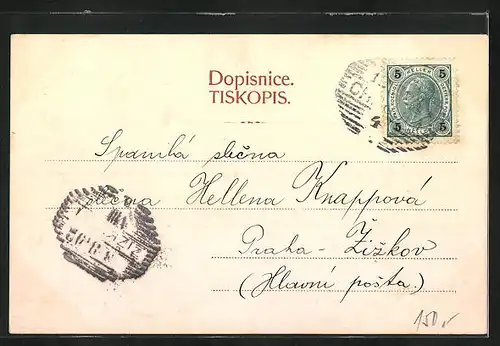 Dopisnice.
TISKOPIS.
5 HELLER 5
5 HELLER 5
Spanilá slečna
slečna Hellena Knappová
Praha - Žižkov
(Hlavní pošta.)
150,-